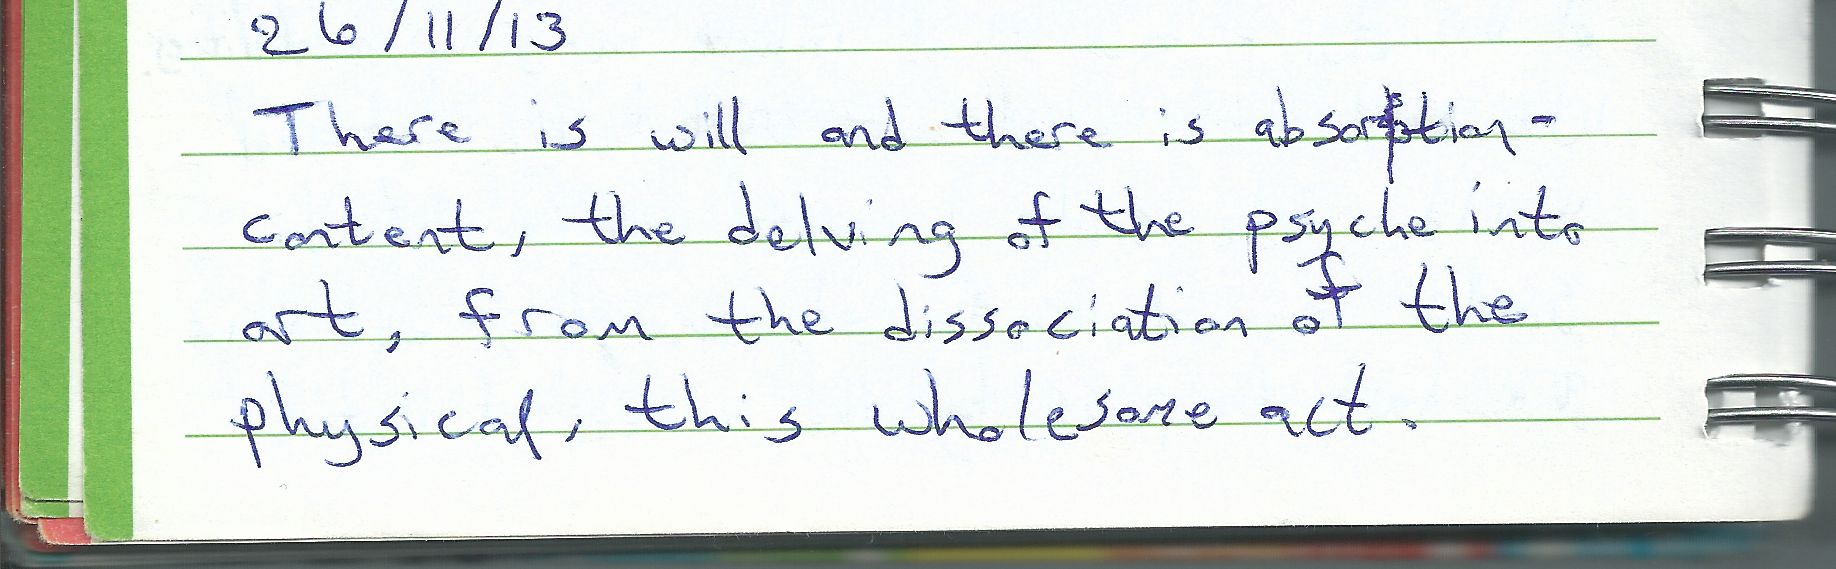 26/11/13
There is will and there is absorption-
content, the delving of the psyche into
art, from the dissociation of the
physical, this wholesome act.